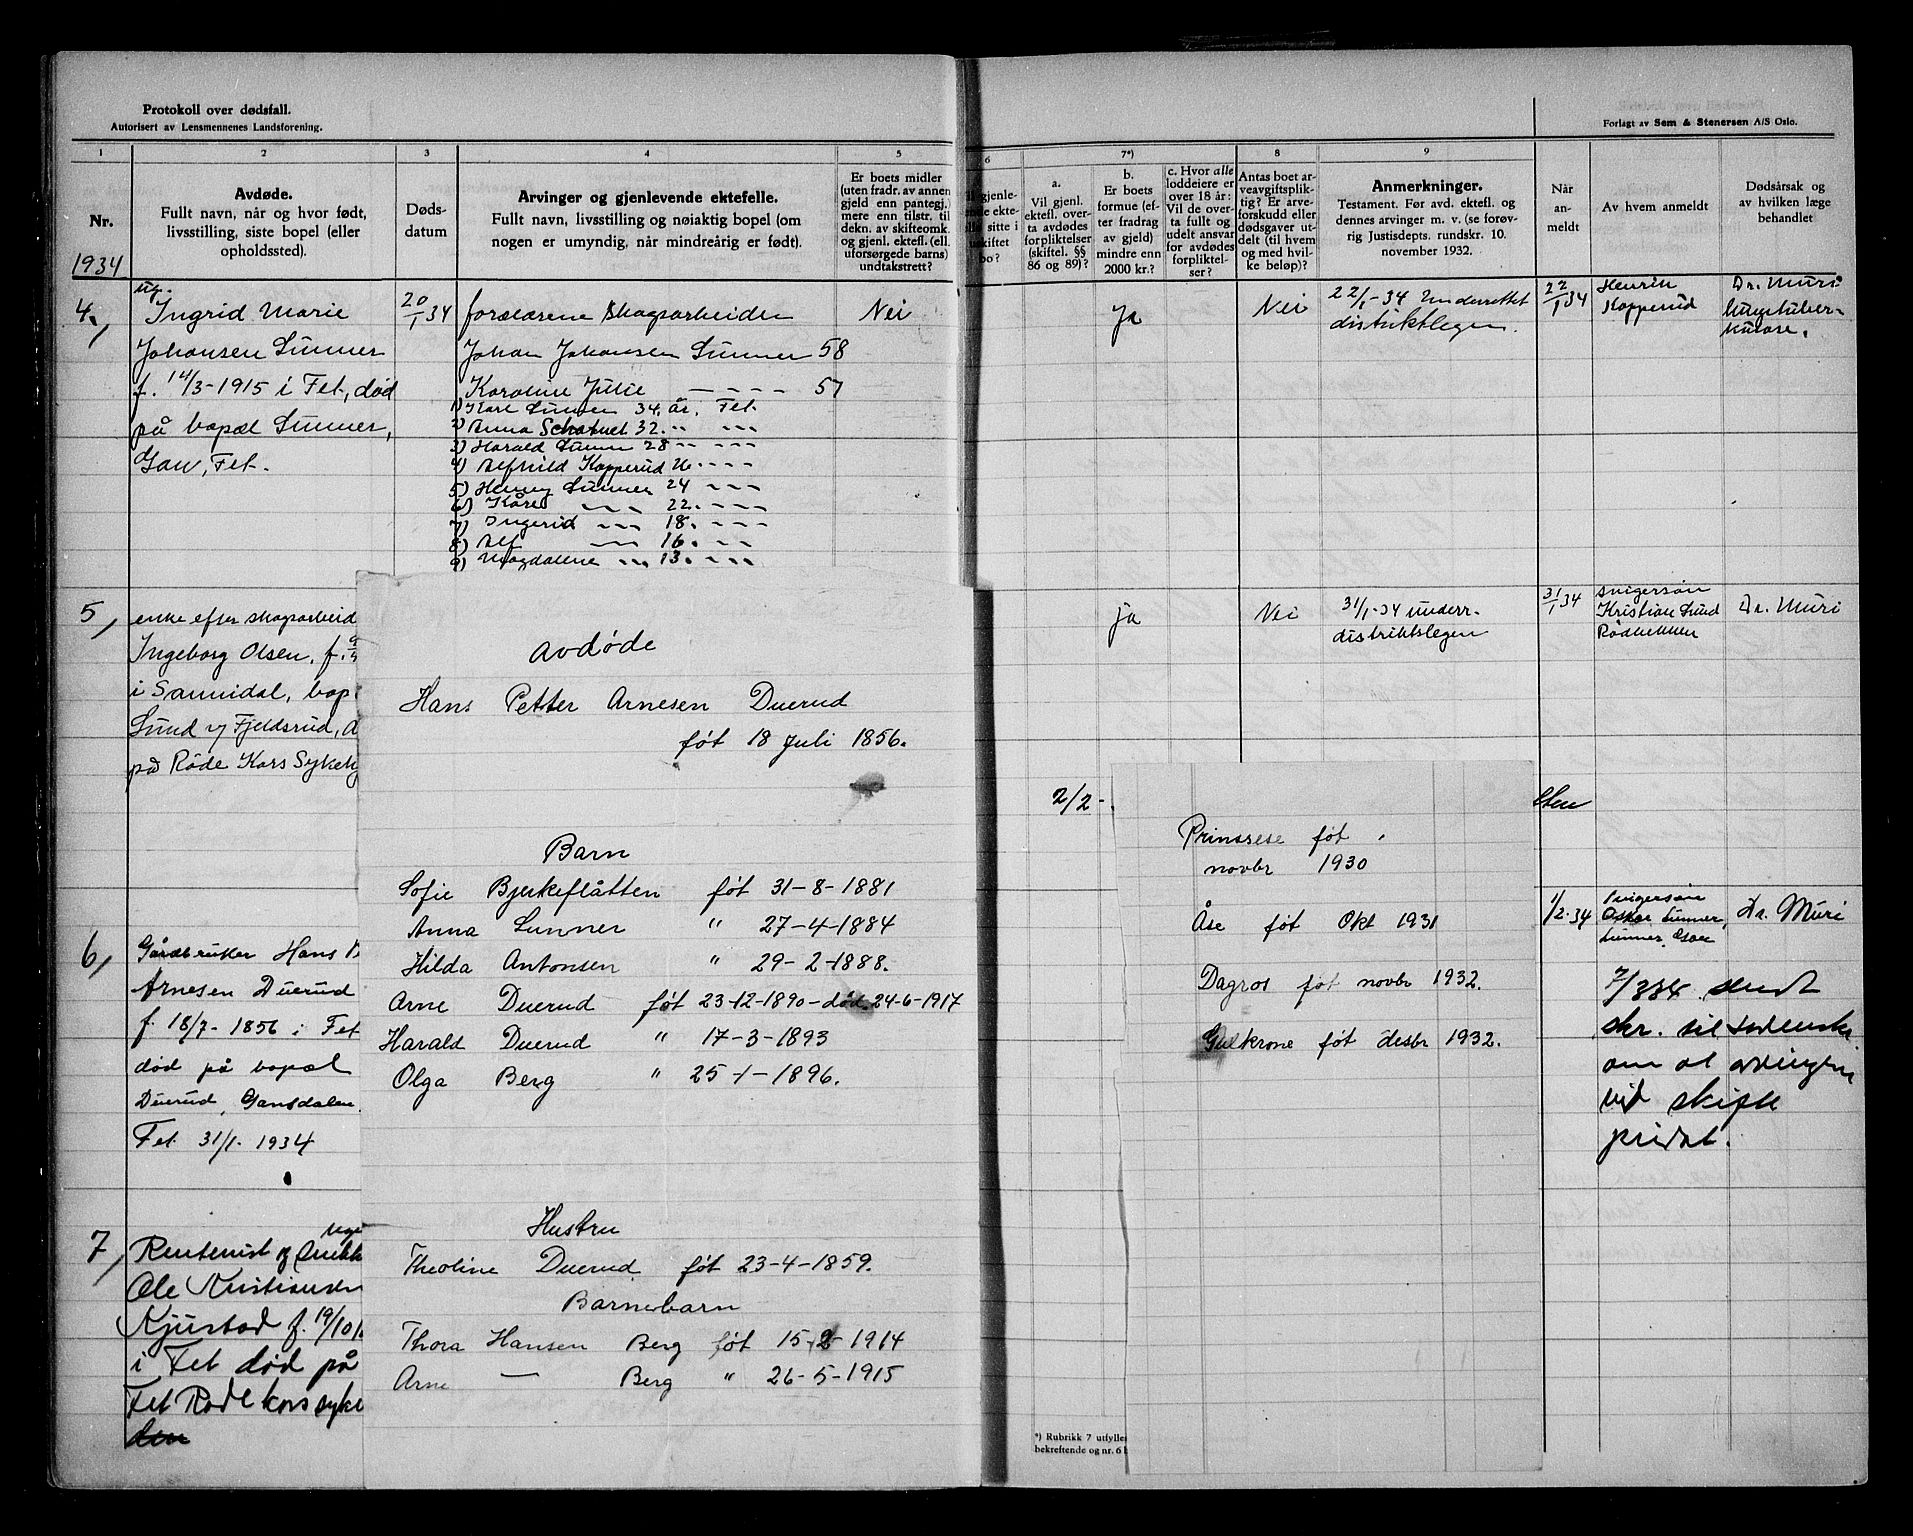 Protokoll over dødsfall.
Autorisert av Lensmennenes Landsforening.
1
2
3
4
5
Nr.
1934
Avdøde.
Fullt navn, når og hvor født,
livsstilling, siste bopel (eller
opholdssted).
Døds-
datum
Arvinger og gjenlevende ektefelle.
Fullt navn, livsstilling og nøiaktig bopel (om
nogen er umyndig, når mindreårig er født).
Er boets midler
(uten fradr. av annen
gjeld enn pantegj.)
mere enn tilstr. til
dekn. av skifteomk.
og gjenl. ektefl. (ell.
uforsørgede barns)
undtakstrett?
4,
ug.
Ingrid Marie
Johansen Sunner
f. 14/3-1915 i Fet, død
på bopæl Sunner,
Gan, Fet.
20/1 34
forældrene skogsarbeider
Johan Johansen Sunner 58
Karoline Julie — — — — 57
1) Karl Sunner 34. år, Fet.
2) Anna 32. " — — —
3) Harald Sunner 28 " — — —
4) Alfhild Kopperud 26. — — — —
5) Henny Sunner 24 — — —
6) Kåre — — 22. — — — —
7) Ingerid — — — 18. — — —
8) Alf — — — 16. — — —
9) Magdalene — — 13. — — —
Nei
5,
enke efter skogsarbeid
Ingeborg Olsen, f.
i Sannidal, bop
Sund u/ Fjeldsrud,
på Røde Kors Sykehj
6,
Gårdbruker Hans P
Arnesen Duerud
f. 18/7-1856 i Fet
død på bopæl
Duerud, Gansdalen
Fet 31/1. 1934
7,
Rentenist og
Ole Kristiansen
Kjustad f. 19/10
i Fet død på
Fet Røde kors syke
den
Avdøde
Hans Petter Arnesen Duerud
føt 18 Juli 1856.
Barn
Sofie Bjerkeflåtten føt 31-8-1881
Anna Sunner " 27-4-1884
Hilda Antonsen " 29-2-1888.
Arne Duerud føt 23-12-1890-død 24-6-1917
Harald Duerud " 17-3-1893
Olga Berg " 25-1-1896.
Hustru
Theoline Duerud føt 23-4-1859.
Barnebarn
Thora Hansen Berg føt 15-2-1914
Arne — Berg " 26-5-1915
Forlagt av Sem & Stenersen A/S Oslo.
6
7*)
8
9
il gjenle-
nde ekte-
lle sitte i
uskiftet
bo?
a.
Vil gjenl.
ektefl. over-
ta avdødes
forpliktelser
(skiftel. §§
86 og 89)?
b.
Er boets
formue (ef-
ter fradrag
av gjeld)
mindre enn
2000 kr.?
c. Hvor alle
loddeiere er
over 18 år:
Vil de over-
ta fullt og
udelt ansvar
for avdødes
forpliktel-
ser?
Antas boet ar-
veavgiftsplik-
tig? Er arve-
forskudd eller
dødsgaver ut-
delt (til hvem
og med hvil-
ke beløp)?
Anmerkninger.
Testament. Før avd. ektefl. og
dennes arvinger m. v. (se forøv-
rig Justisdepts. rundskr. 10.
november 1932.
Når
an-
meldt
Av hvem anmeldt
Dødsårsak og
av hvilken læge
behandlet
Ja
Nei
22/1-34 Underrettet
distriktlegen.
22/1 34
Henrik
Kopperud
Dr. Muri
Lungetuber-
kulose.
ja
Nei
31/1-34 underr.
distriktslegen
31/1 34
svigersøn
Kristian Lund
Rødbekken
Dr. Muri
2/2-
1/2.34
svigersøn
Oskar Sunner,
Sunner,
Dr. Muri
7/3 34 sendt
skr. til
om at arvingene
vil skifte
privat.
Prinsese føt
novbr 1930
Åse føt Okt 1931
Dagros føt novbr 1932.
Gulkrone føt desbr 1932.
*) Rubrikk 7 utfylles
bekreftende og nr. 6 b